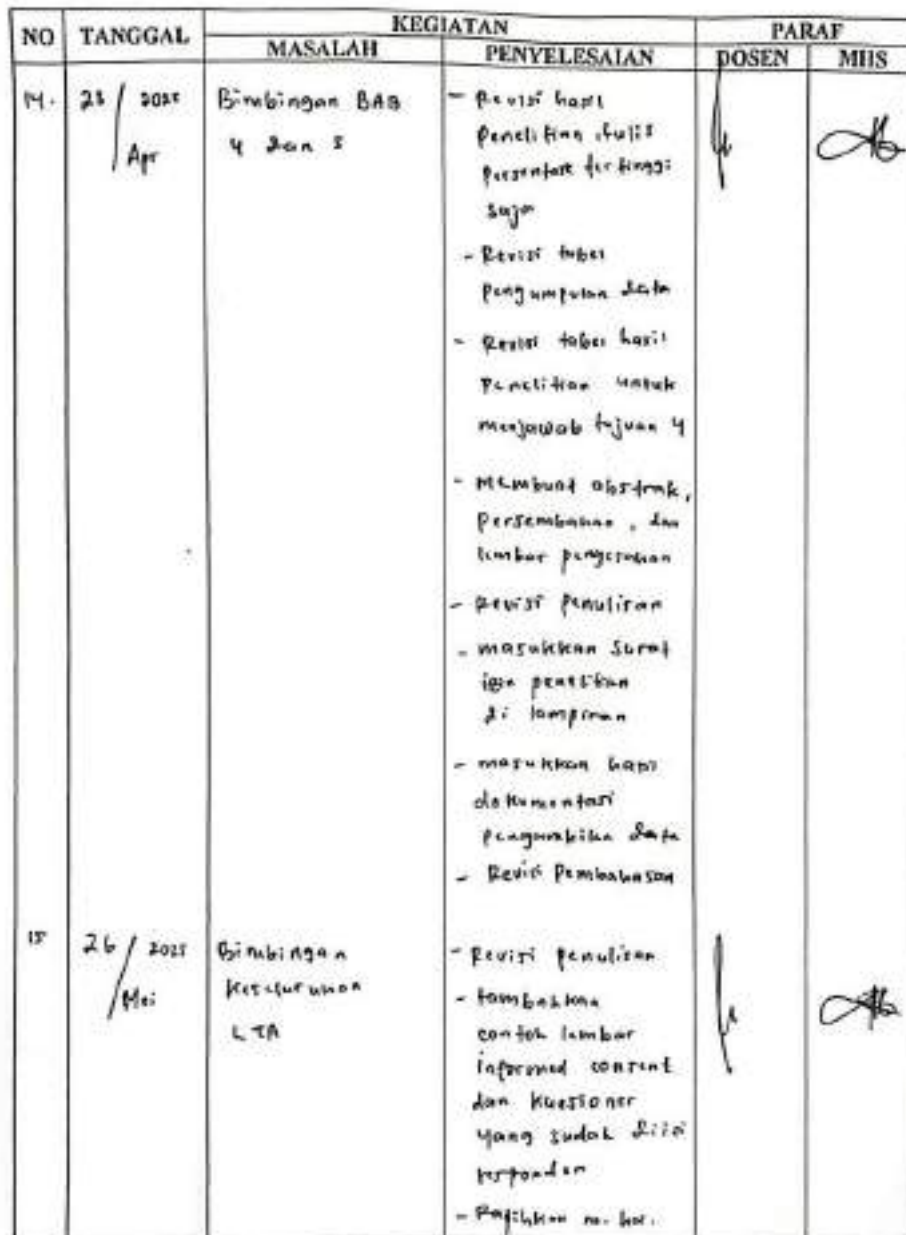 NO TANGGAL KEGIATAN PARAF
MASALAH PENYELESAIAN DOSEN MHS
14. 23 / 2025 Bimbingan BAB - Revisi hasil
Apr 4 dan 5 penelitian, tulis
persentase tertinggi
saja
- Revisi tabel
pengumpulan data
- Revisi tabel hasil
penelitian untuk
menjawab tujuan 4
- Membuat abstrak,
persembahan, dan
lembar pengesahan
- Revisi penulisan
- masukkan surat
izin penelitian
di lampiran
- masukkan hasil
dokumentasi
pengambilan data
- Revisi Pembahasan
15 26 / 2025 Bimbingan - Revisi penulisan
Mei keseluruhan - tambahkan
LTA contoh lembar
informed consent
dan kuesioner
yang sudah diisi
responden
- Rapihkan no. hal.